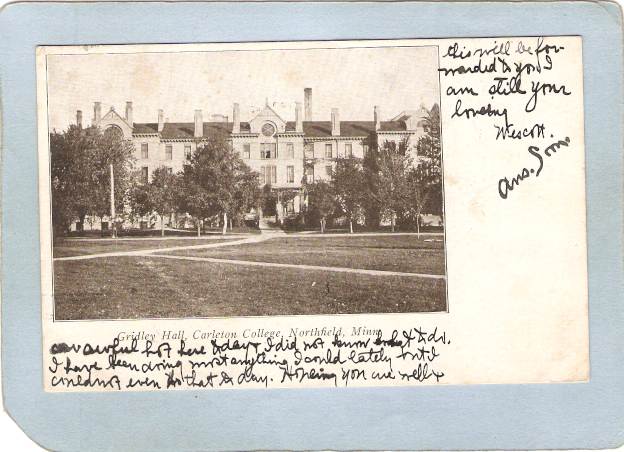 this will be for-
warded to you I
am still your
loveing
Wescott.
ans. Soon
Gridley Hall, Carleton College, Northfield, Minn.
awful hot here to day I did not know what to do.
I have been doing most anything I could lately but I
could not even do that to day. Hopeing you are well